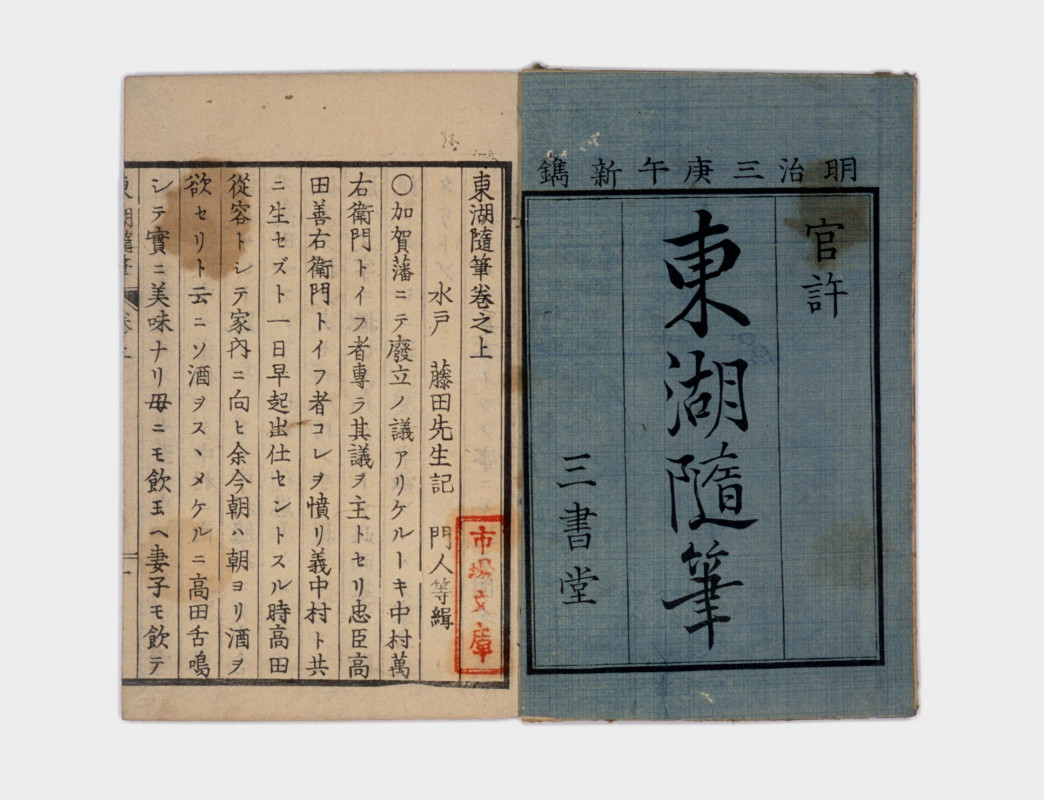 明治三庚午新鐫
官許
東湖隨筆
三書堂
東湖隨筆卷之上
水戸 藤田先生記 門人等緝
市場文庫
〇加賀藩ニテ廢立ノ議アリケルトキ中村萬
右衛門トイフ者專ラ其議ヲ主トセリ忠臣高
田善右衛門トイフ者コレヲ憤リ義中村ト共
ニ生セズト一日早起出仕セントスル時高田
從容トシテ家內ニ向ヒ余今朝ハ朝ヨリ酒ヲ
欲セリト云ニソ酒ヲスヽメケルニ高田舌鳴
シテ實ニ美味ナリ母ニモ飲玉ヘ妻子モ飲テ
東湖隨筆 卷之上 一